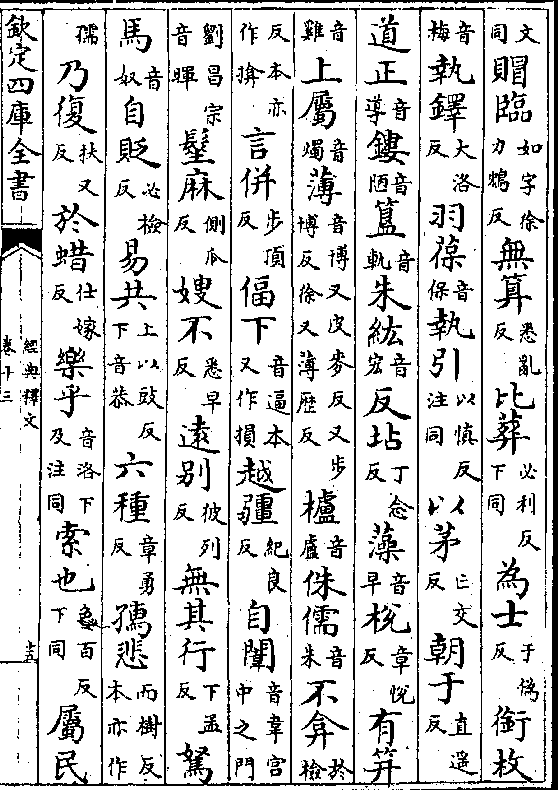 文同賵臨如字徐力鴆反無筭悉亂反比葬必利反下同為士于偽反銜枚
音梅執鐸大洛反羽葆音保執引以慎反注同以茅亡交反朝于直遥反
道正音導鏤音陋簋音軌朱紘音宏反坫丁念反藻音早梲章悅反有筓
音雞上屬音燭薄音博又皮麥反又步博反徐又薄歷反櫨音盧侏儒音朱不弇於檢
反本亦作揜言併步頂反偪下音逼本又作損越疆紀良反自闈音韋宮中之門
劉昌宗音暉髽麻側瓜反嫂不悉早反遠别彼列反無其行下孟反駑
馬音奴自貶必檢反易共上以豉反下音恭六種章勇反孺悲而樹反本亦作
孺乃復扶又反於蜡仕嫁反樂乎音洛下及注同索也色百反下同屬民
欽定四庫全書
經典釋文
卷十三
十五